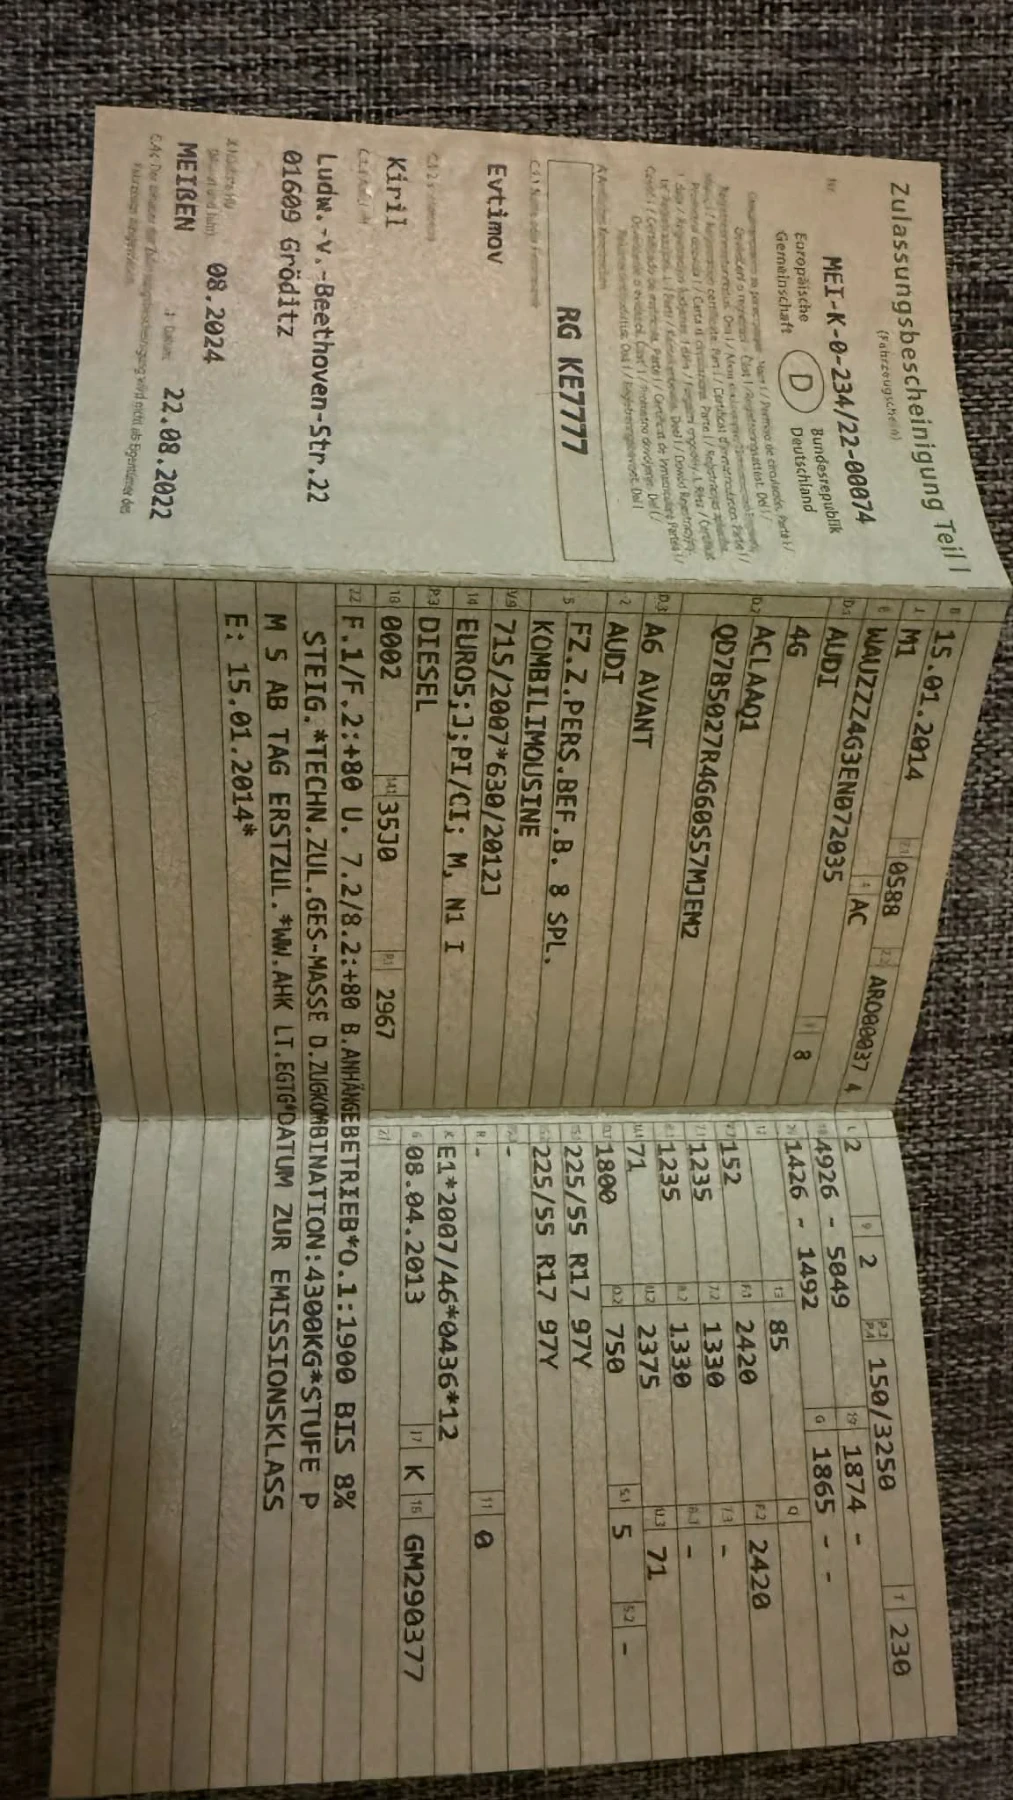 Zulassungsbescheinigung Teil I
(Fahrzeugschein)
Nr. MEI-K-0-234/22-00074
Europäische
Gemeinschaft
D
Bundesrepublik
Deutschland
RG KE7777
Evtimov
Kiril
Ludw.-V.-Beethoven-Str.22
01609 Gröditz
08.2024
MEIßEN
22.08.2022
B 15.01.2014 2.1 0588 2.2 ARO00037 4
J M1 4 AC
E WAUZZZ4G3EN072035 3 8
D.1 AUDI
4G
D.2 ACLAAQ1
QD7B5027R4G60S57MJEM2
D.3 A6 AVANT
2 AUDI
5 FZ.Z.PERS.BEF.B. 8 SPL.
KOMBILIMOUSINE
V.9 715/2007*630/2012J
14 EURO5;J;PI/CI; M, N1 I
P.3 DIESEL
10 0002 14.1 35J0 P.1 2967
L 2 9 2 P.2 P.4 150/3250 T 230
18 4926 - 5049 19 1874 -
20 1426 - 1492 G 1865 - -
12 13 85 Q
V.7 152 F.1 2420 F.2 2420
7.1 1235 7.2 1330 7.3 -
8.1 1235 8.2 1330 8.3 -
U.1 71 U.2 2375 U.3 71
O.1 1800 O.2 750 S.1 5 S.2 -
15.1 225/55 R17 97Y
15.2 225/55 R17 97Y
15.3 -
R - 11 0
K E1*2007/46*0436*12
6 08.04.2013 17 K 16 GM290377
21
22 F.1/F.2:+80 U. 7.2/8.2:+80 B.ANHÄNGEBETRIEB*O.1:1900 BIS 8%
STEIG.*TECHN.ZUL.GES-MASSE D.ZUGKOMBINATION:4300KG*STUFE P
M 5 AB TAG ERSTZUL.*WW.AHK LT.EGTG*DATUM ZUR EMISSIONSKLASS
E: 15.01.2014*